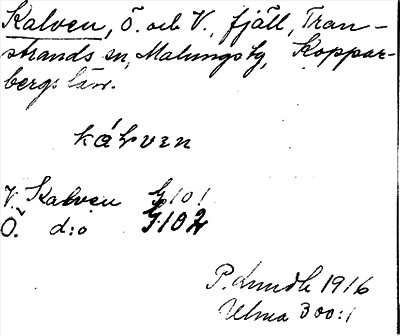 Kalven, Ö. och V., fjäll, Tran-
strands sn, Malungs tg, Koppar-
bergs län.
kálven
V. Kalven G 101
Ö. d:o G 102
P. Lundh 1916
Ulma 300:1